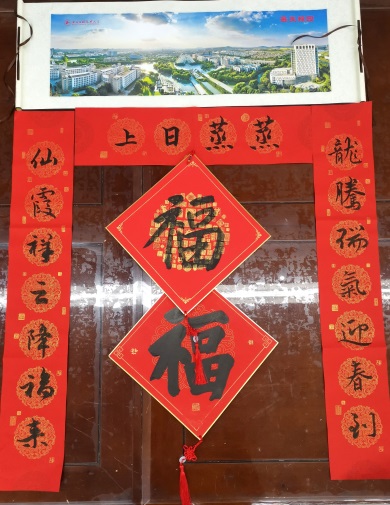 蒸蒸日上
龍騰瑞氣迎春到
仙霞祥云降福来
福
福